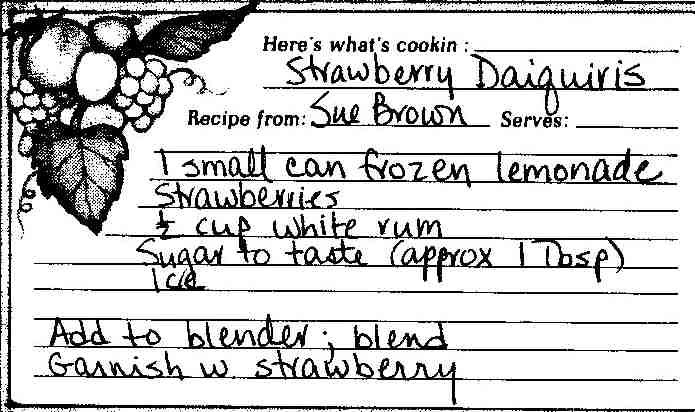 Here's what's cookin:
Strawberry Daiquiris
Recipe from: Sue Brown Serves:
1 small can frozen lemonade
Strawberries
½ cup white rum
Sugar to taste (approx 1 Tbsp)
Ice
Add to blender; blend
Garnish w strawberry